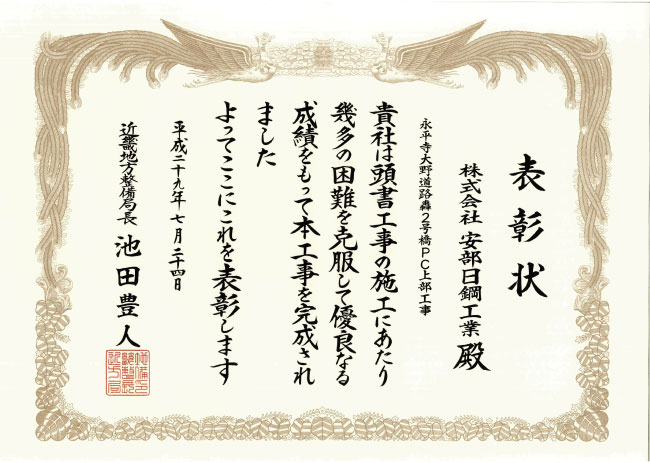 表彰状
株式会社 安部日鋼工業 殿
永平寺大野道路轟2号橋PC上部工事
貴社は頭書工事の施工にあたり
幾多の困難を克服して優良なる
成績をもって本工事を完成され
ました
よってここにこれを表彰します
平成二十九年七月二十四日
近畿地方整備局長 池田豊人